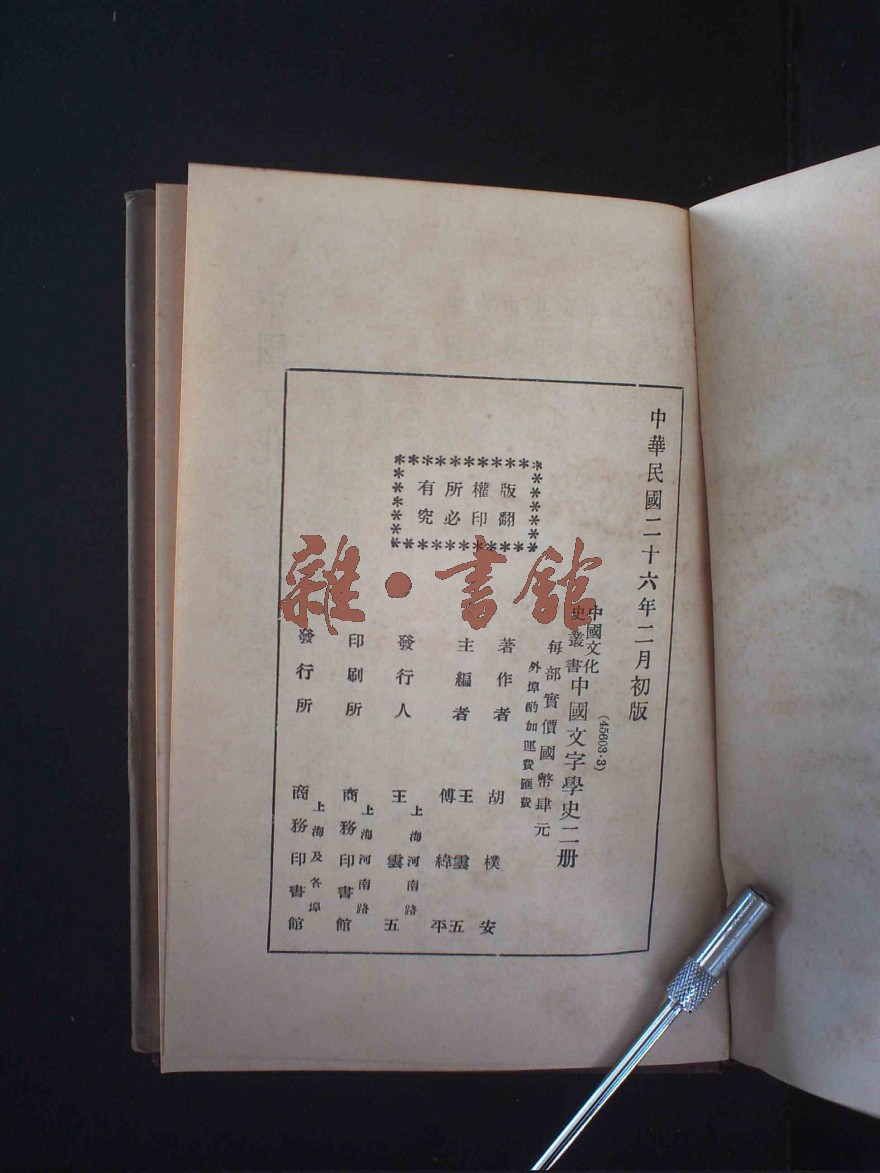 中華民國二十六年二月初版
(45603·3)
中國文化
史叢書
中國文字學史二册
每部實價國幣肆元
外埠酌加運費匯費
著作者 胡樸安
主編者 王雲五
傅緯平
發行人 王雲五
上海河南路
印刷所 商務印書館
上海河南路
發行所 商務印書館
上海及各埠
版權所有
翻印必究
雜·書館